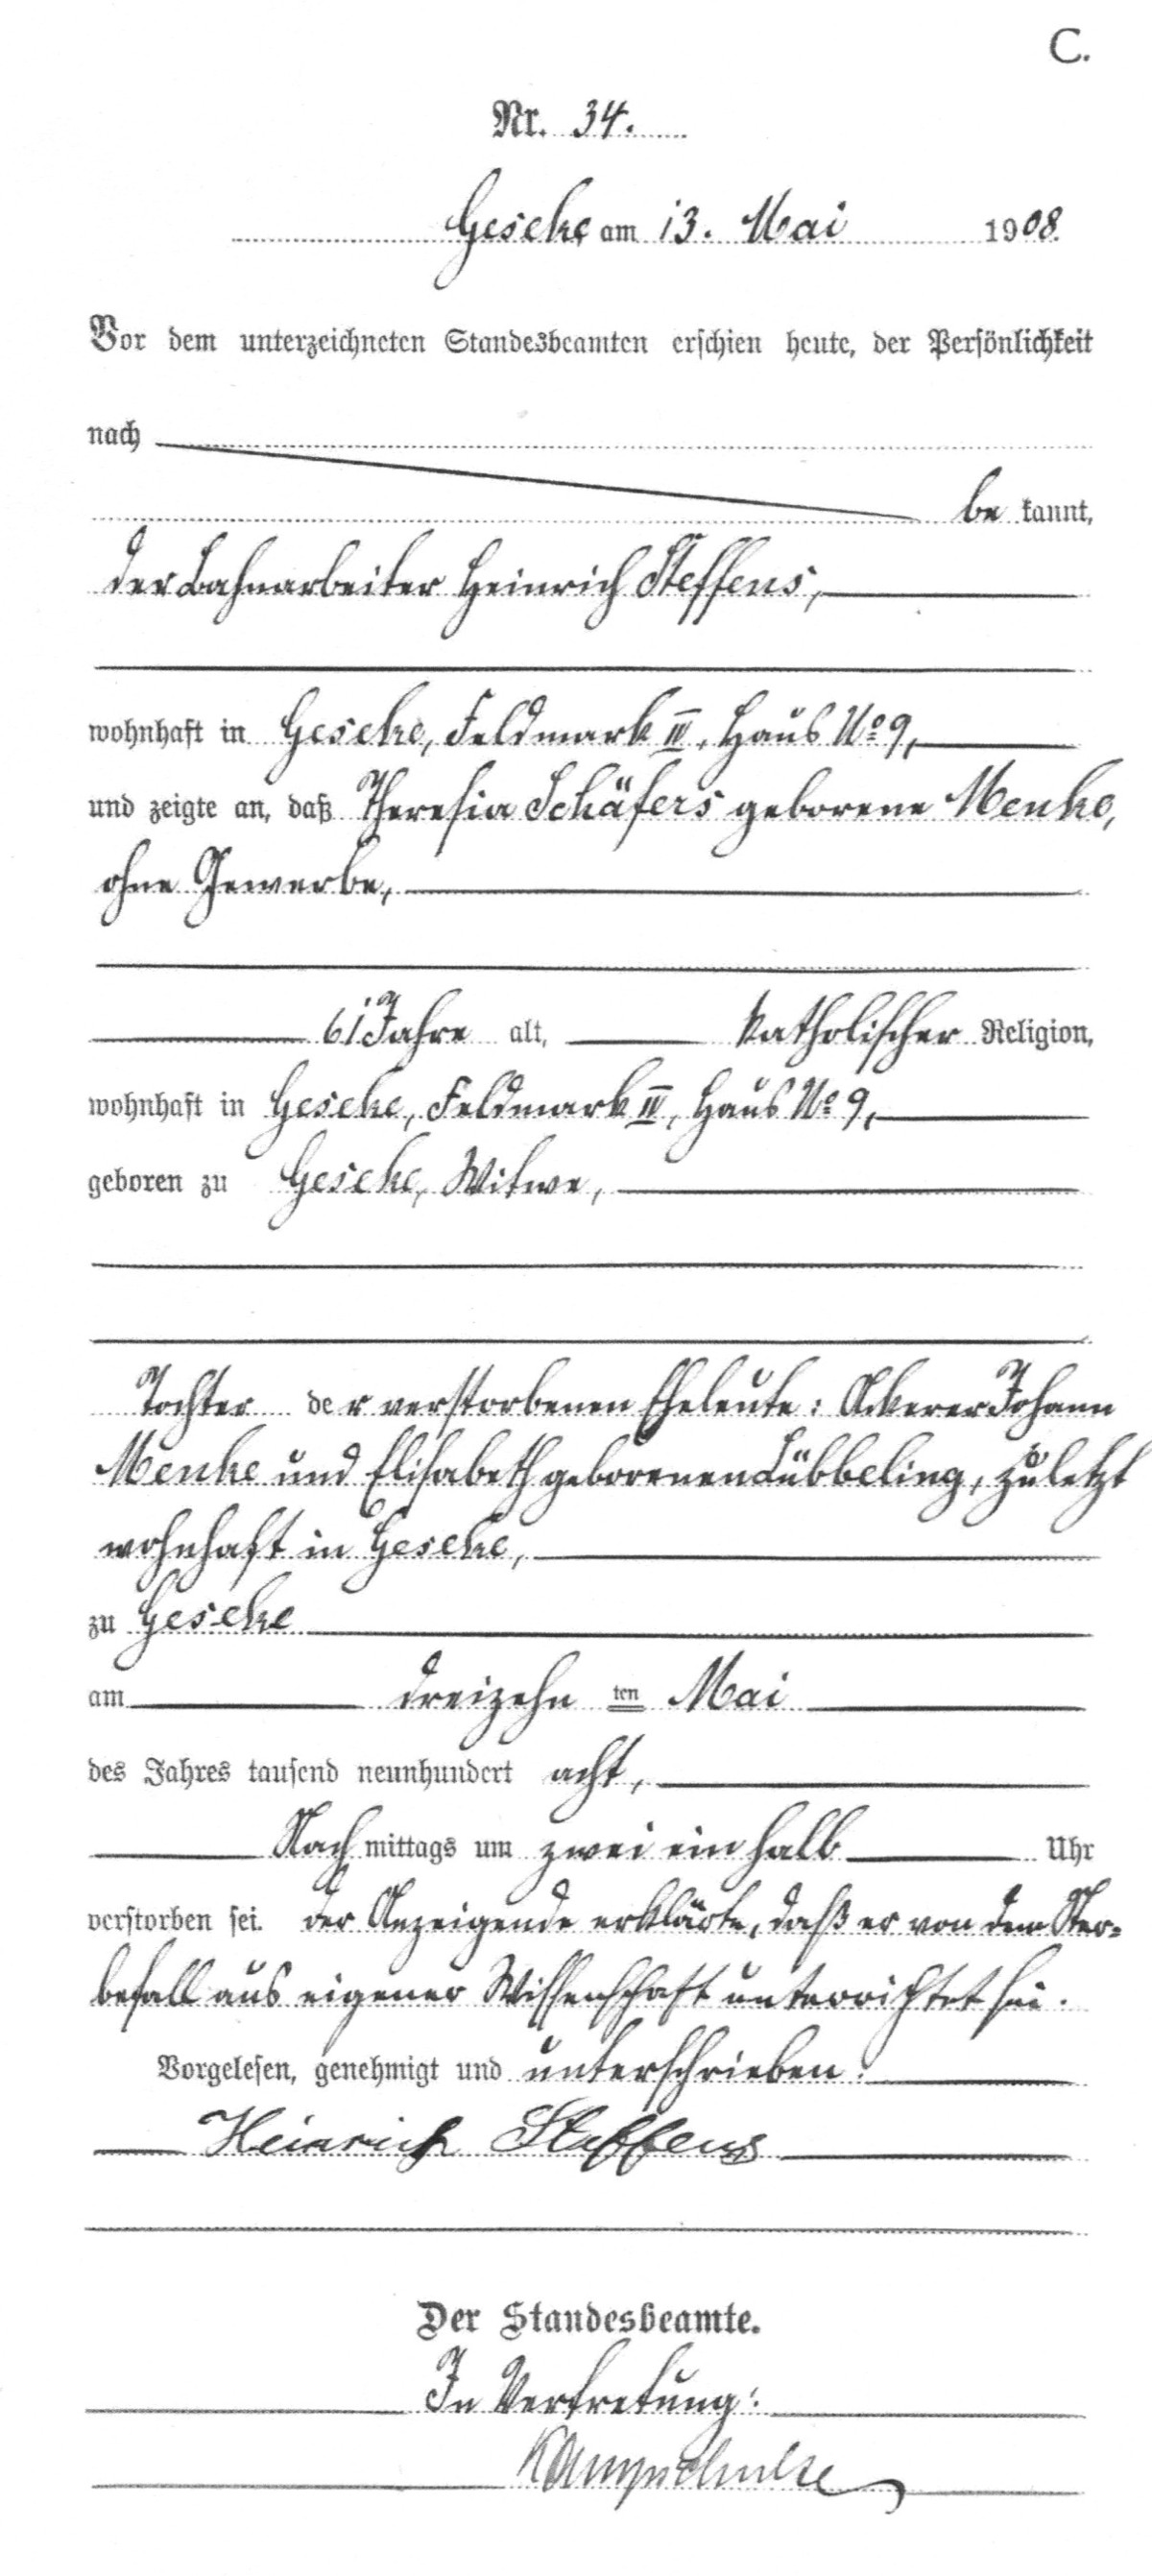 C.
Nr. 34.
Geseke am 13. Mai 1908.
Vor dem unterzeichneten Standesbeamten erschien heute, der Persönlichkeit
nach
be kannt,
der Bahnarbeiter Heinrich Steffens,
wohnhaft in Geseke, Feldmark III, Haus No 9,
und zeigte an, daß Theresia Schäfers geborene Menke,
ohne Gewerbe,
61 Jahre alt, katholischer Religion,
wohnhaft in Geseke, Feldmark III, Haus No 9,
geboren zu Geseke, Witwe,
Tochter der verstorbenen Eheleute: Ackerer Johann
Menke und Elisabeth geborenen Lübbeling, zuletzt
wohnhaft in Geseke,
zu Geseke
am dreizehn ten Mai
des Jahres tausend neunhundert acht,
Nach mittags um zwei ein halb Uhr
verstorben sei. Der Anzeigende erklärte, daß er von dem Ster-
befall aus eigener Wissenschaft unterrichtet sei.
Vorgelesen, genehmigt und unterschrieben.
Heinrich Steffens
Der Standesbeamte.
In Vertretung:
Kampschulte